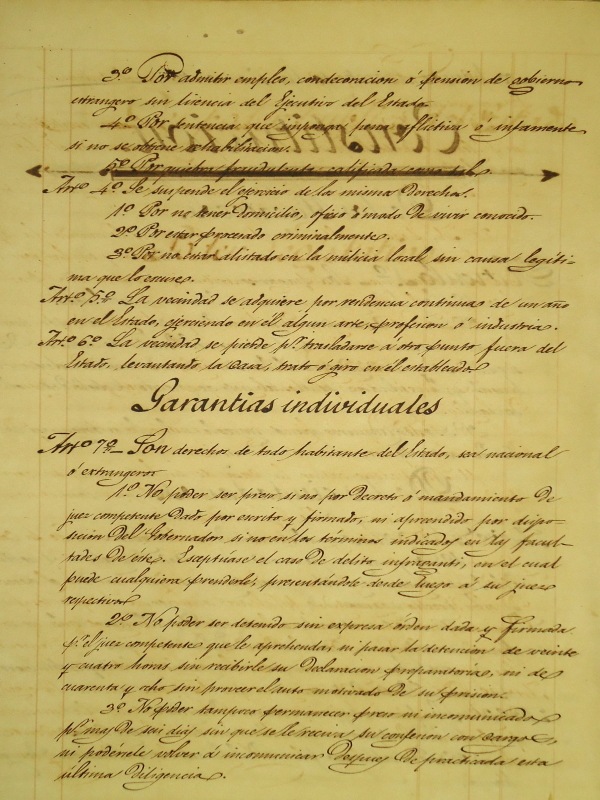 3.º Por admitir empleo, condecoracion ó pension de gobierno
extrangero sin licencia del Ejecutivo del Estado.
4.º Por sentencia que imponga pena aflictiva ó infamante
si no se obtiene rehabilitacion.
5.º Por quiebra fraudulenta calificada como tal.
Artº 4.º Se suspende el ejercicio de los mismos derechos.
1.º Por no tener domicilio, oficio ó modo de vivir conocido.
2.º Por estar procesado criminalmente.
3.º Por no estar alistado en la milicia local sin causa legiti-
ma que lo escuse.
Artº 5.º La vecindad se adquiere por residencia continua de un año
en el Estado, ejerciendo en él algun arte, profesion ó industria.
Artº 6.º La vecindad se pierde pr. trasladarse á otro punto fuera del
Estado, levantando la casa, trato ó giro en él establecido.
Garantias individuales
Artº 7.º Son derechos de todo habitante del Estado, sea nacional
ó extrangero
1.º No poder ser preso si no por decreto ó mandamiento de
juez competente dado por escrito y firmado, ni aprendido por dispo-
sicion del Gobernador si no en los terminos indicados en las facul-
tades de éste. Esceptúase el caso de delito infraganti, en el cual
puede cualquiera prenderle, presentándole desde luego á su juez
respectivo.
2.º No poder ser detenido sin expresa órden dada y firmada
pr. el juez competente que le aprehenda, ni pasar la detencion de veinte
y cuatro horas sin recibirle su declaracion preparatoria, ni de
cuarenta y ocho sin proveer el auto motivado de su prision.
3.º No poder tampoco permanecer preso ni incomunicado
pr. mas de seis dias sin que se le reciba su confesion con cargos,
ni podérsele volver á incomunicar despues de practicada esta
última diligencia.